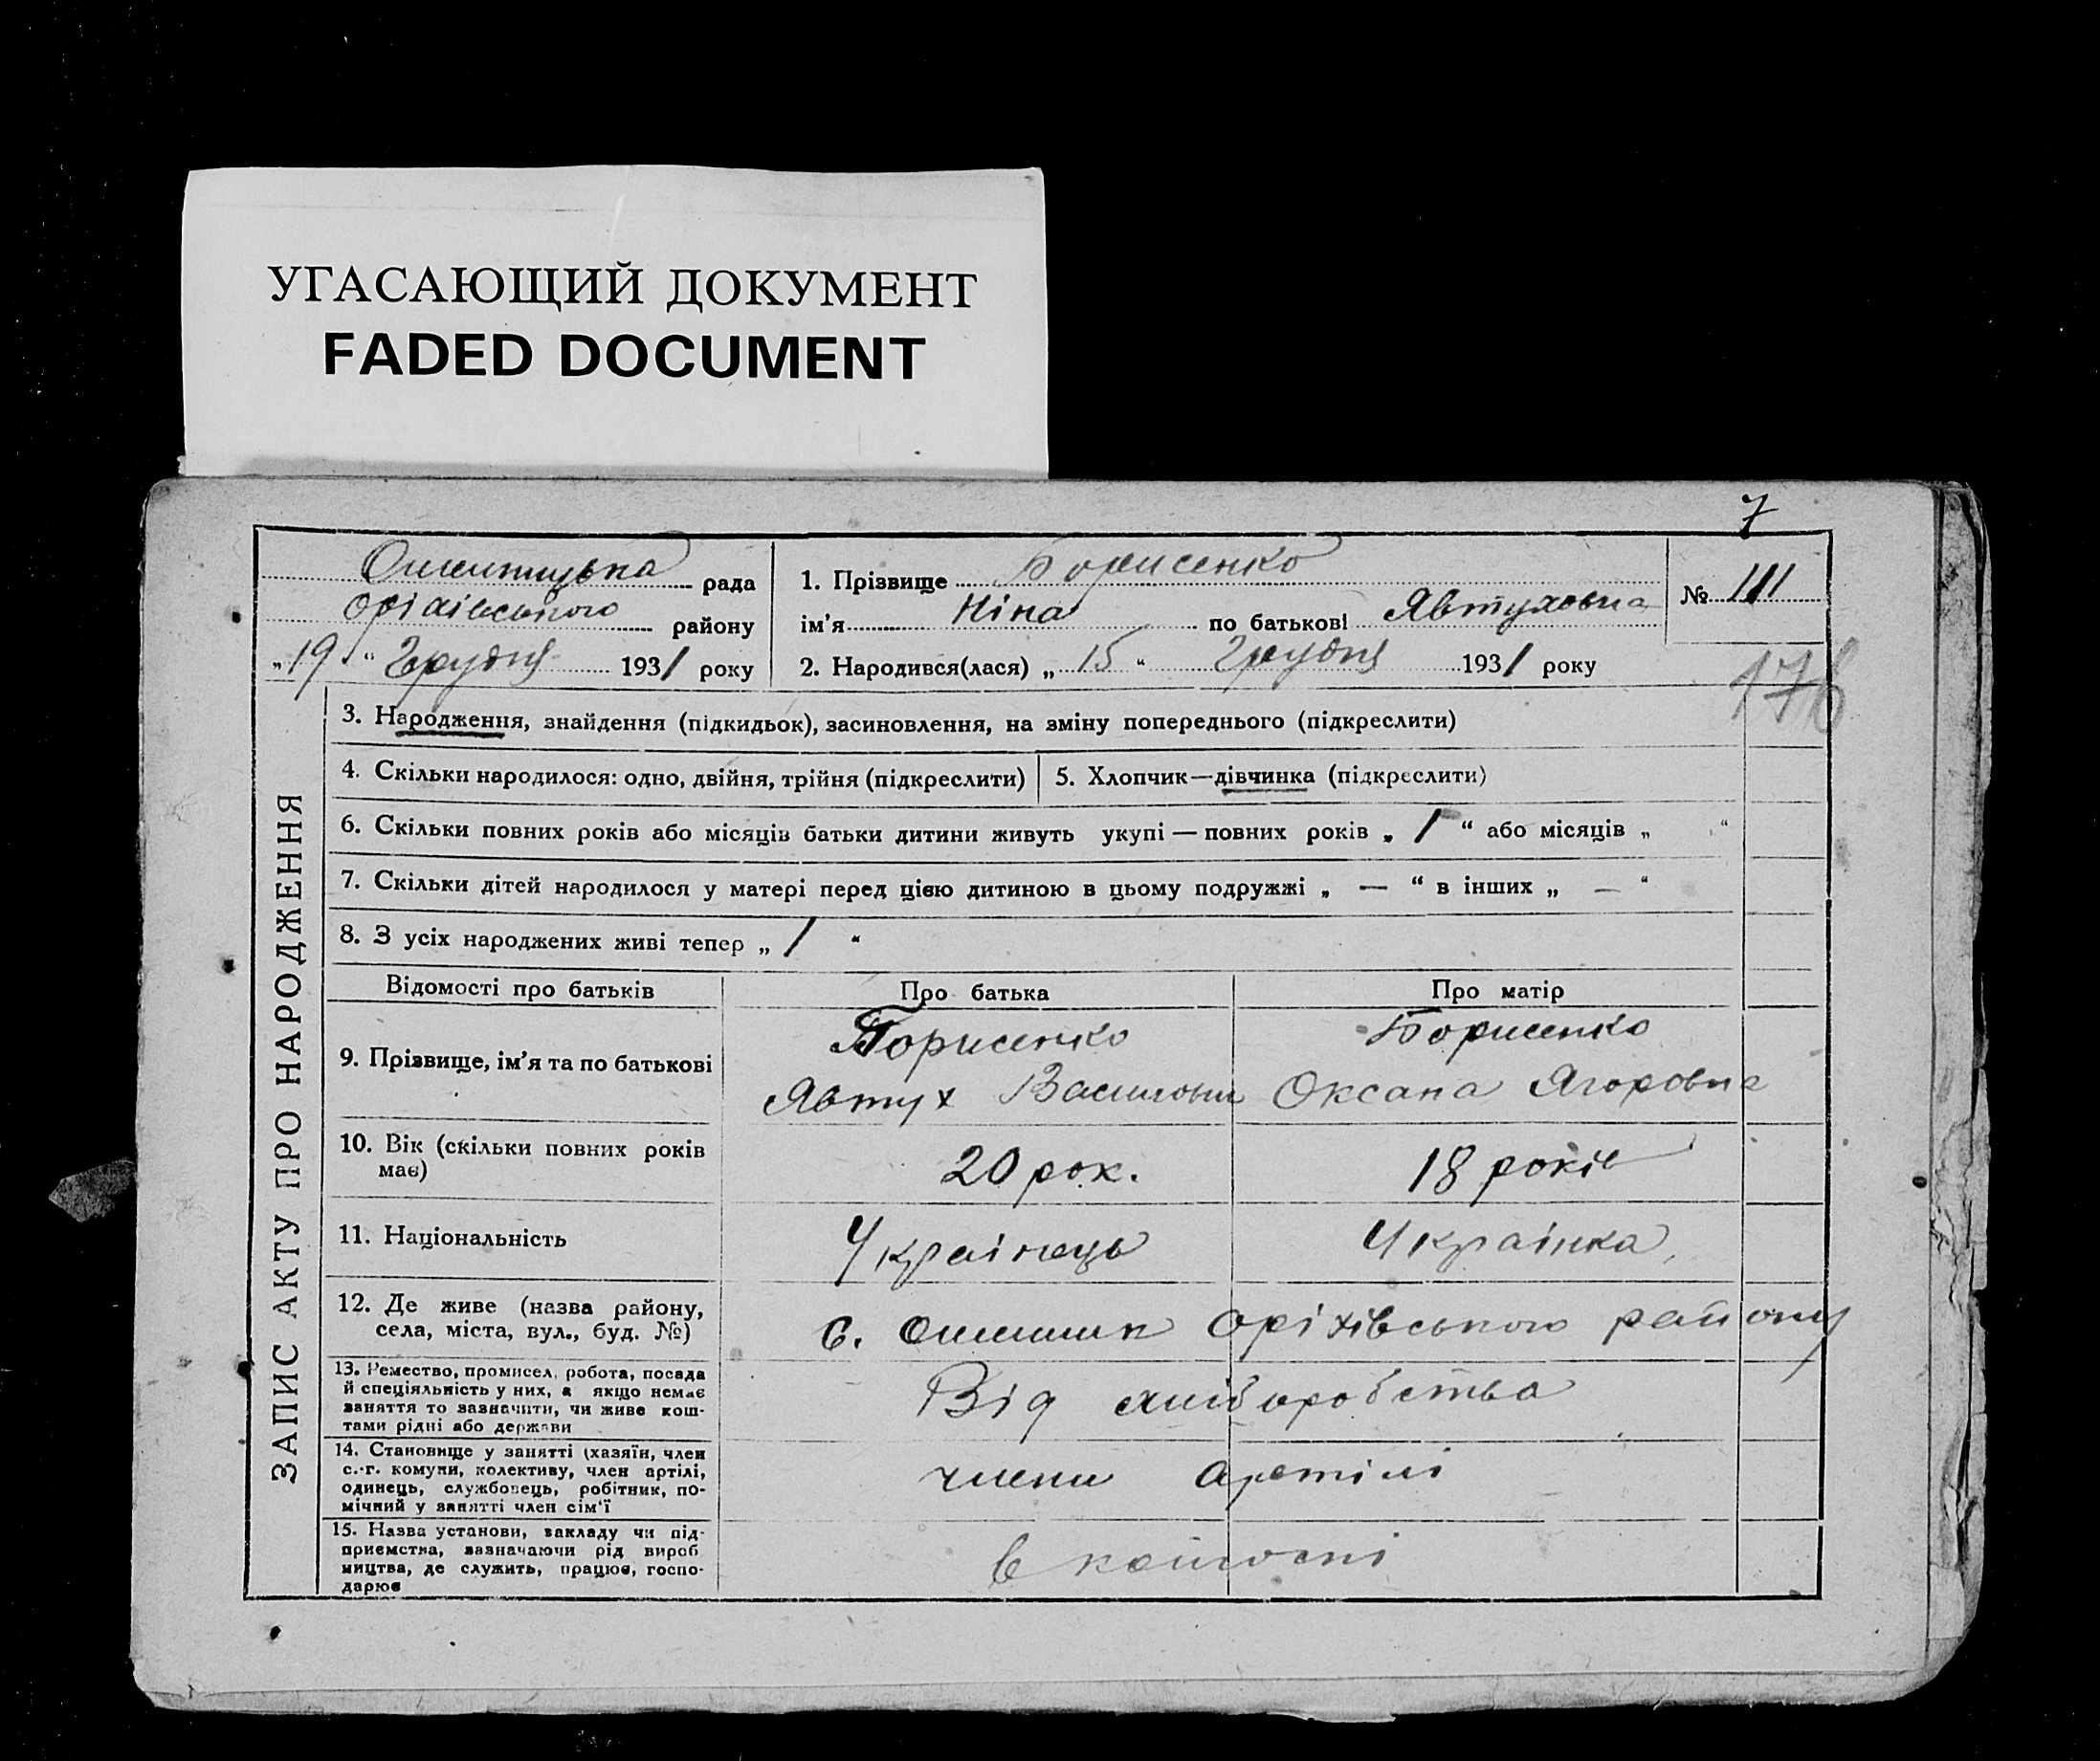 УГАСАЮЩИЙ ДОКУМЕНТ
FADED DOCUMENT
7
Ошитцька рада
Оріхівського району
„19“ Грудня 1931 року
1. Прізвище Борисенко
ім'я Ніна по батькові Явтуховна
2. Народився(лася) „15“ Грудня 1931 року
№ 111
176
ЗАПИС АКТУ ПРО НАРОДЖЕННЯ
3. Народження, знайдення (підкидьок), засиновлення, на зміну попереднього (підкреслити)
4. Скільки народилося: одно, двійня, трійня (підкреслити)
5. Хлопчик—дівчинка (підкреслити)
6. Скільки повних років або місяців батьки дитини живуть укупі — повних років „ 1 “ або місяців „ “
7. Скільки дітей народилося у матері перед цією дитиною в цьому подружжі „ — “ в інших „ — “
8. З усіх народжених живі тепер „ 1 “
Відомості про батьків
Про батька
Про матір
9. Прізвище, ім'я та по батькові
Борисенко
Явтух Василович
Борисенко
Оксана Ягоровна
10. Вік (скільки повних років
має)
20 рок.
18 років
11. Національність
Українець
Українка
12. Де живе (назва району,
села, міста, вул., буд. №)
с. Оріхівського району
13. Ремество, промисел, робота, посада
й спеціяльність у них, а якщо немає
заняття то зазначити, чи живе кош-
тами рідні або держави
Від хліборобства
14. Становище у занятті (хазяїн, член
с.-г. комуни, колективу, член артілі,
одинець, службовець, робітник, по-
мічний у занятті член сім'ї
члени артілі
15. Назва установи, закладу чи під-
приємства, зазначаючи рід вироб
ництва, де служить, працює, госпо-
дарює
в колгоспі